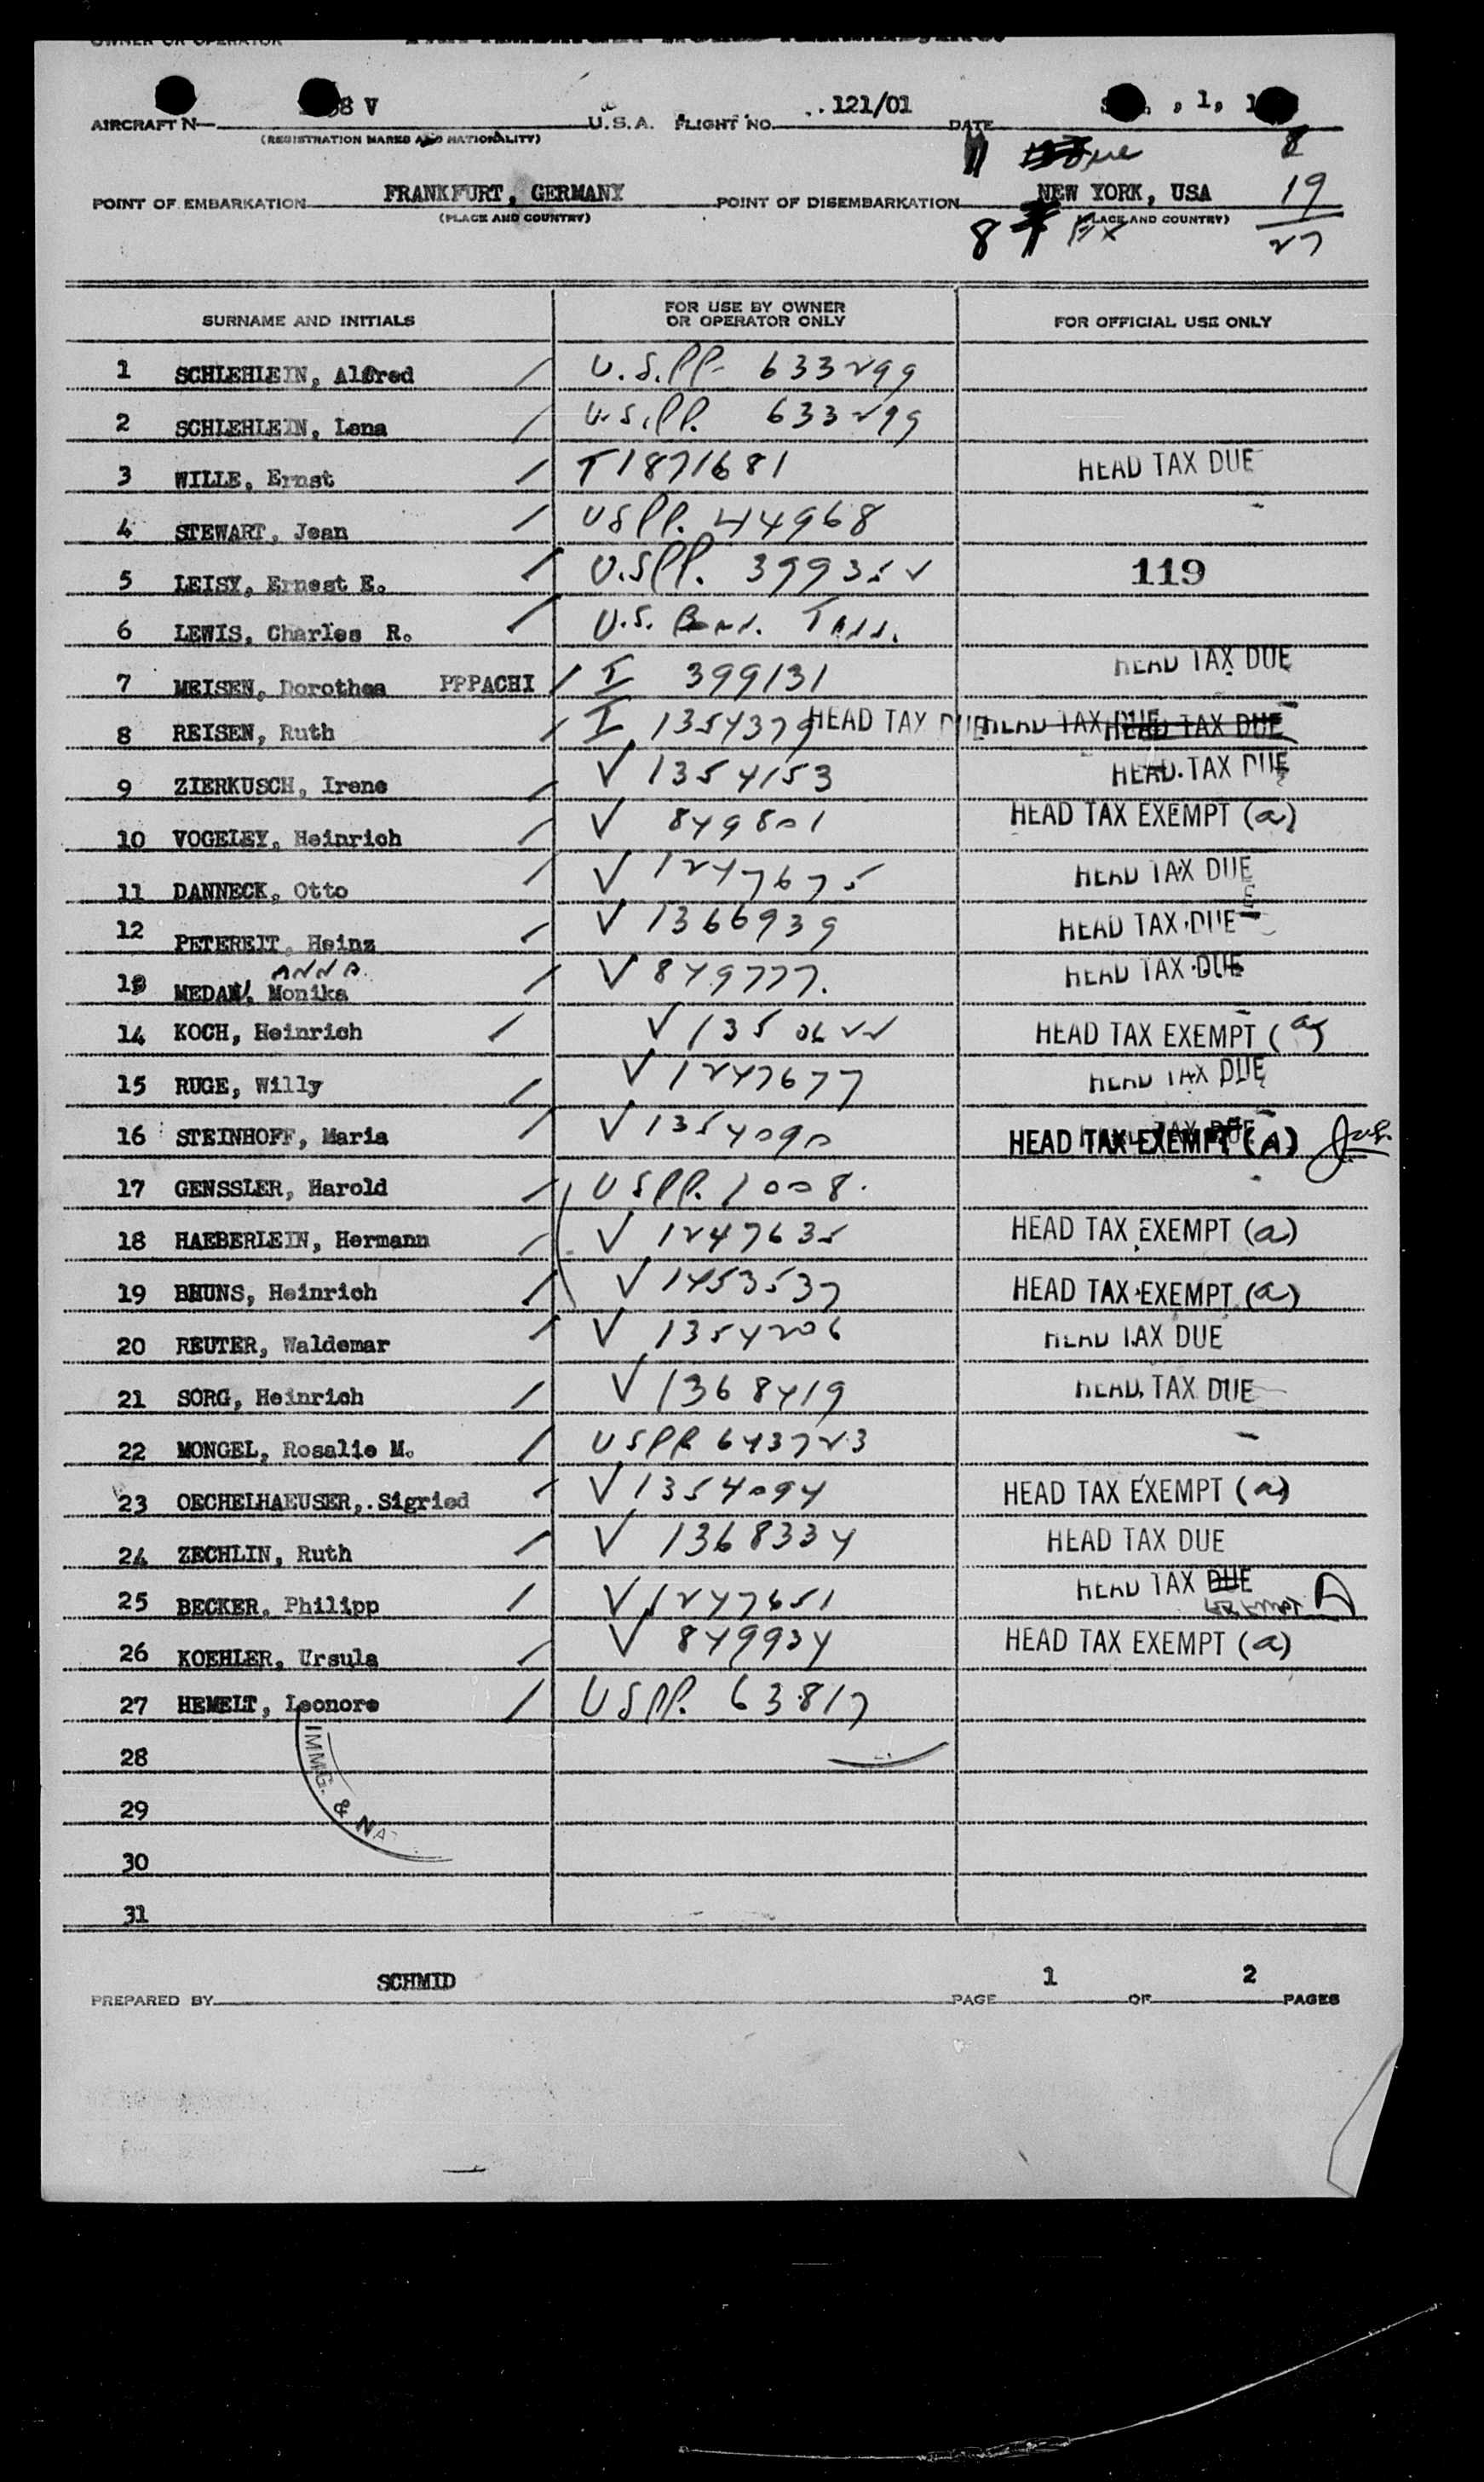 OWNER OR OPERATOR
AIRCRAFT N 8 V U.S.A. FLIGHT NO. 121/01 DATE , 1, 1
(REGISTRATION MARKS AND NATIONALITY)
Due 8
POINT OF EMBARKATION FRANKFURT, GERMANY POINT OF DISEMBARKATION NEW YORK, USA 19
(PLACE AND COUNTRY) (PLACE AND COUNTRY)
8 Ex 27
SURNAME AND INITIALS FOR USE BY OWNER OR OPERATOR ONLY FOR OFFICIAL USE ONLY
1 SCHLEHLEIN, Alfred / U.S.PP. 633299
2 SCHLEHLEIN, Lena / U.S.PP. 633299
3 WILLE, Ernst / T1871681 HEAD TAX DUE
4 STEWART, Jean / USPP. 44968
5 LEISY, Ernest E. / U.SPP. 399352 119
6 LEWIS, Charles R. / U.S.
7 MEISEN, Dorothea PPPACHI / I 399131 HEAD TAX DUE
8 REISEN, Ruth / I 1354379 HEAD TAX DUE HEAD TAX DUE HEAD TAX DUE
9 ZIERKUSCH, Irene / V 1354153 HEAD TAX DUE
10 VOGELEY, Heinrich / V 849801 HEAD TAX EXEMPT (a)
11 DANNECK, Otto / V 1247675 HEAD TAX DUE
12 PETEREIT, Heinz / V 1366939 HEAD TAX DUE
ANNA
13 MEDAW, Monika / V 849777. HEAD TAX DUE
14 KOCH, Heinrich / V 1350622 HEAD TAX EXEMPT (a)
15 RUGE, Willy / V 1247677 HEAD TAX DUE
16 STEINHOFF, Maria / V 1354090 HEAD TAX DUE HEAD TAX EXEMPT (A)
17 GENSSLER, Harold / USPP. 1008.
18 HAEBERLEIN, Hermann / V 1247635 HEAD TAX EXEMPT (a)
19 BHUNS, Heinrich / V 1453537 HEAD TAX EXEMPT (a)
20 REUTER, Waldemar / V 1354206 HEAD TAX DUE
21 SORG, Heinrich / V 1368419 HEAD TAX DUE
22 MONGEL, Rosalie M. / USPP 643723
23 OECHELHAEUSER, Sigried / V 1354094 HEAD TAX EXEMPT (a)
24 ZECHLIN, Ruth / V 1368334 HEAD TAX DUE
25 BECKER, Philipp / V 1247651 HEAD TAX DUE EXEMPT A
26 KOEHLER, Ursula / V 849934 HEAD TAX EXEMPT (a)
27 HEMELT, Leonore / USPP. 63817
28
29
30
31
IMMG. & NAT
PREPARED BY SCHMID PAGE 1 OF 2 PAGES